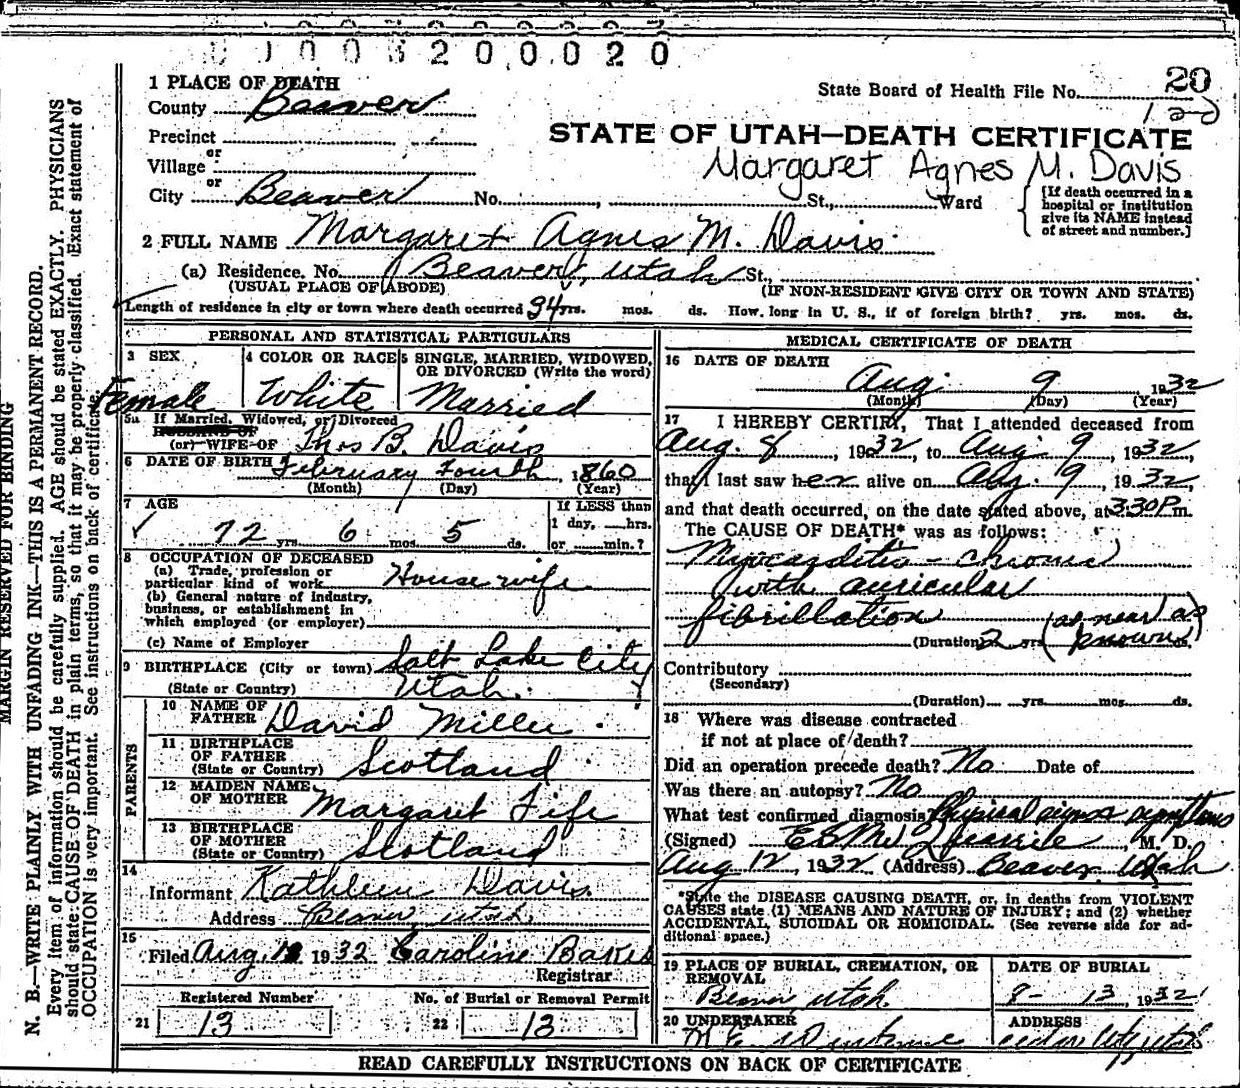 0 0 3 2 0 0 0 2 0
1 PLACE OF DEATH
County Beaver
State Board of Health File No. 20
Precinct
or
Village
or
City Beaver No. St., Ward
STATE OF UTAH—DEATH CERTIFICATE
Margaret Agnes M. Davis
[If death occurred in a
hospital or institution
give its NAME instead
of street and number.]
2 FULL NAME Margaret Agnes M. Davis
(a) Residence. No. Beaver, Utah St.,
(USUAL PLACE OF ABODE) (IF NON-RESIDENT GIVE CITY OR TOWN AND STATE)
Length of residence in city or town where death occurred 34 yrs. mos. ds. How long in U. S., if of foreign birth? yrs. mos. ds.
PERSONAL AND STATISTICAL PARTICULARS
3 SEX
Female
4 COLOR OR RACE
White
5 SINGLE, MARRIED, WIDOWED,
OR DIVORCED (Write the word)
Married
5a If Married, Widowed, or Divorced
HUSBAND OF
(or) WIFE OF Thos B. Davis
6 DATE OF BIRTH February Fourth, 1860
(Month) (Day) (Year)
7 AGE
72 yrs. 6 mos. 5 ds.
If LESS than
1 day, hrs.
or min.?
8 OCCUPATION OF DECEASED
(a) Trade, profession or
particular kind of work House wife
(b) General nature of industry,
business, or establishment in
which employed (or employer)
(c) Name of Employer
9 BIRTHPLACE (City or town) Salt Lake City
(State or Country) Utah.
PARENTS
10 NAME OF
FATHER David Miller
11 BIRTHPLACE
OF FATHER
(State or Country) Scotland
12 MAIDEN NAME
OF MOTHER Margaret Fife
13 BIRTHPLACE
OF MOTHER
(State or Country) Scotland
14
Informant Kathleen Davis
Address Beaver Utah
15
Filed Aug. 1932 Caroline
Registrar
Registered Number
21 13
No. of Burial or Removal Permit
22 13
MEDICAL CERTIFICATE OF DEATH
16 DATE OF DEATH
Aug. 9 1932
(Month) (Day) (Year)
17 I HEREBY CERTIFY, That I attended deceased from
Aug. 8, 1932, to Aug. 9, 1932,
that I last saw her alive on Aug. 9, 1932,
and that death occurred, on the date stated above, at 3:30 P.m.
The CAUSE OF DEATH* was as follows:
Myocarditis - chronic
with auricular
fibrillation
(Duration) 2 yrs (as near as
known)
Contributory
(Secondary)
(Duration) yrs. mos. ds.
18 Where was disease contracted
if not at place of death?
Did an operation precede death? No Date of
Was there an autopsy? No
What test confirmed diagnosis Physical signs symptoms
(Signed) M. D.
Aug 12, 1932 (Address) Beaver, Utah
*State the DISEASE CAUSING DEATH, or, in deaths from VIOLENT
CAUSES state (1) MEANS AND NATURE OF INJURY; and (2) whether
ACCIDENTAL, SUICIDAL OR HOMICIDAL. (See reverse side for ad-
ditional space.)
19 PLACE OF BURIAL, CREMATION, OR
REMOVAL
Beaver Utah.
DATE OF BURIAL
8- 13, 1932
20 UNDERTAKER
ADDRESS
Cedar City Utah
READ CAREFULLY INSTRUCTIONS ON BACK OF CERTIFICATE
MARGIN RESERVED FOR BINDING
N. B.—WRITE PLAINLY WITH UNFADING INK—THIS IS A PERMANENT RECORD.
Every item of information should be carefully supplied. AGE should be stated EXACTLY. PHYSICIANS
should state CAUSE OF DEATH in plain terms, so that it may be properly classified. Exact statement of
OCCUPATION is very important. See instructions on back of certificate.